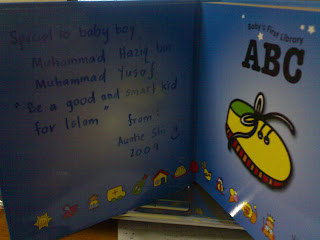 Special to baby boy
Muhammad Haziq bin
Muhammad Yusof
"Be a good and smart kid
for Islam"
from:
Auntie
2009
Baby's First Library
ABC